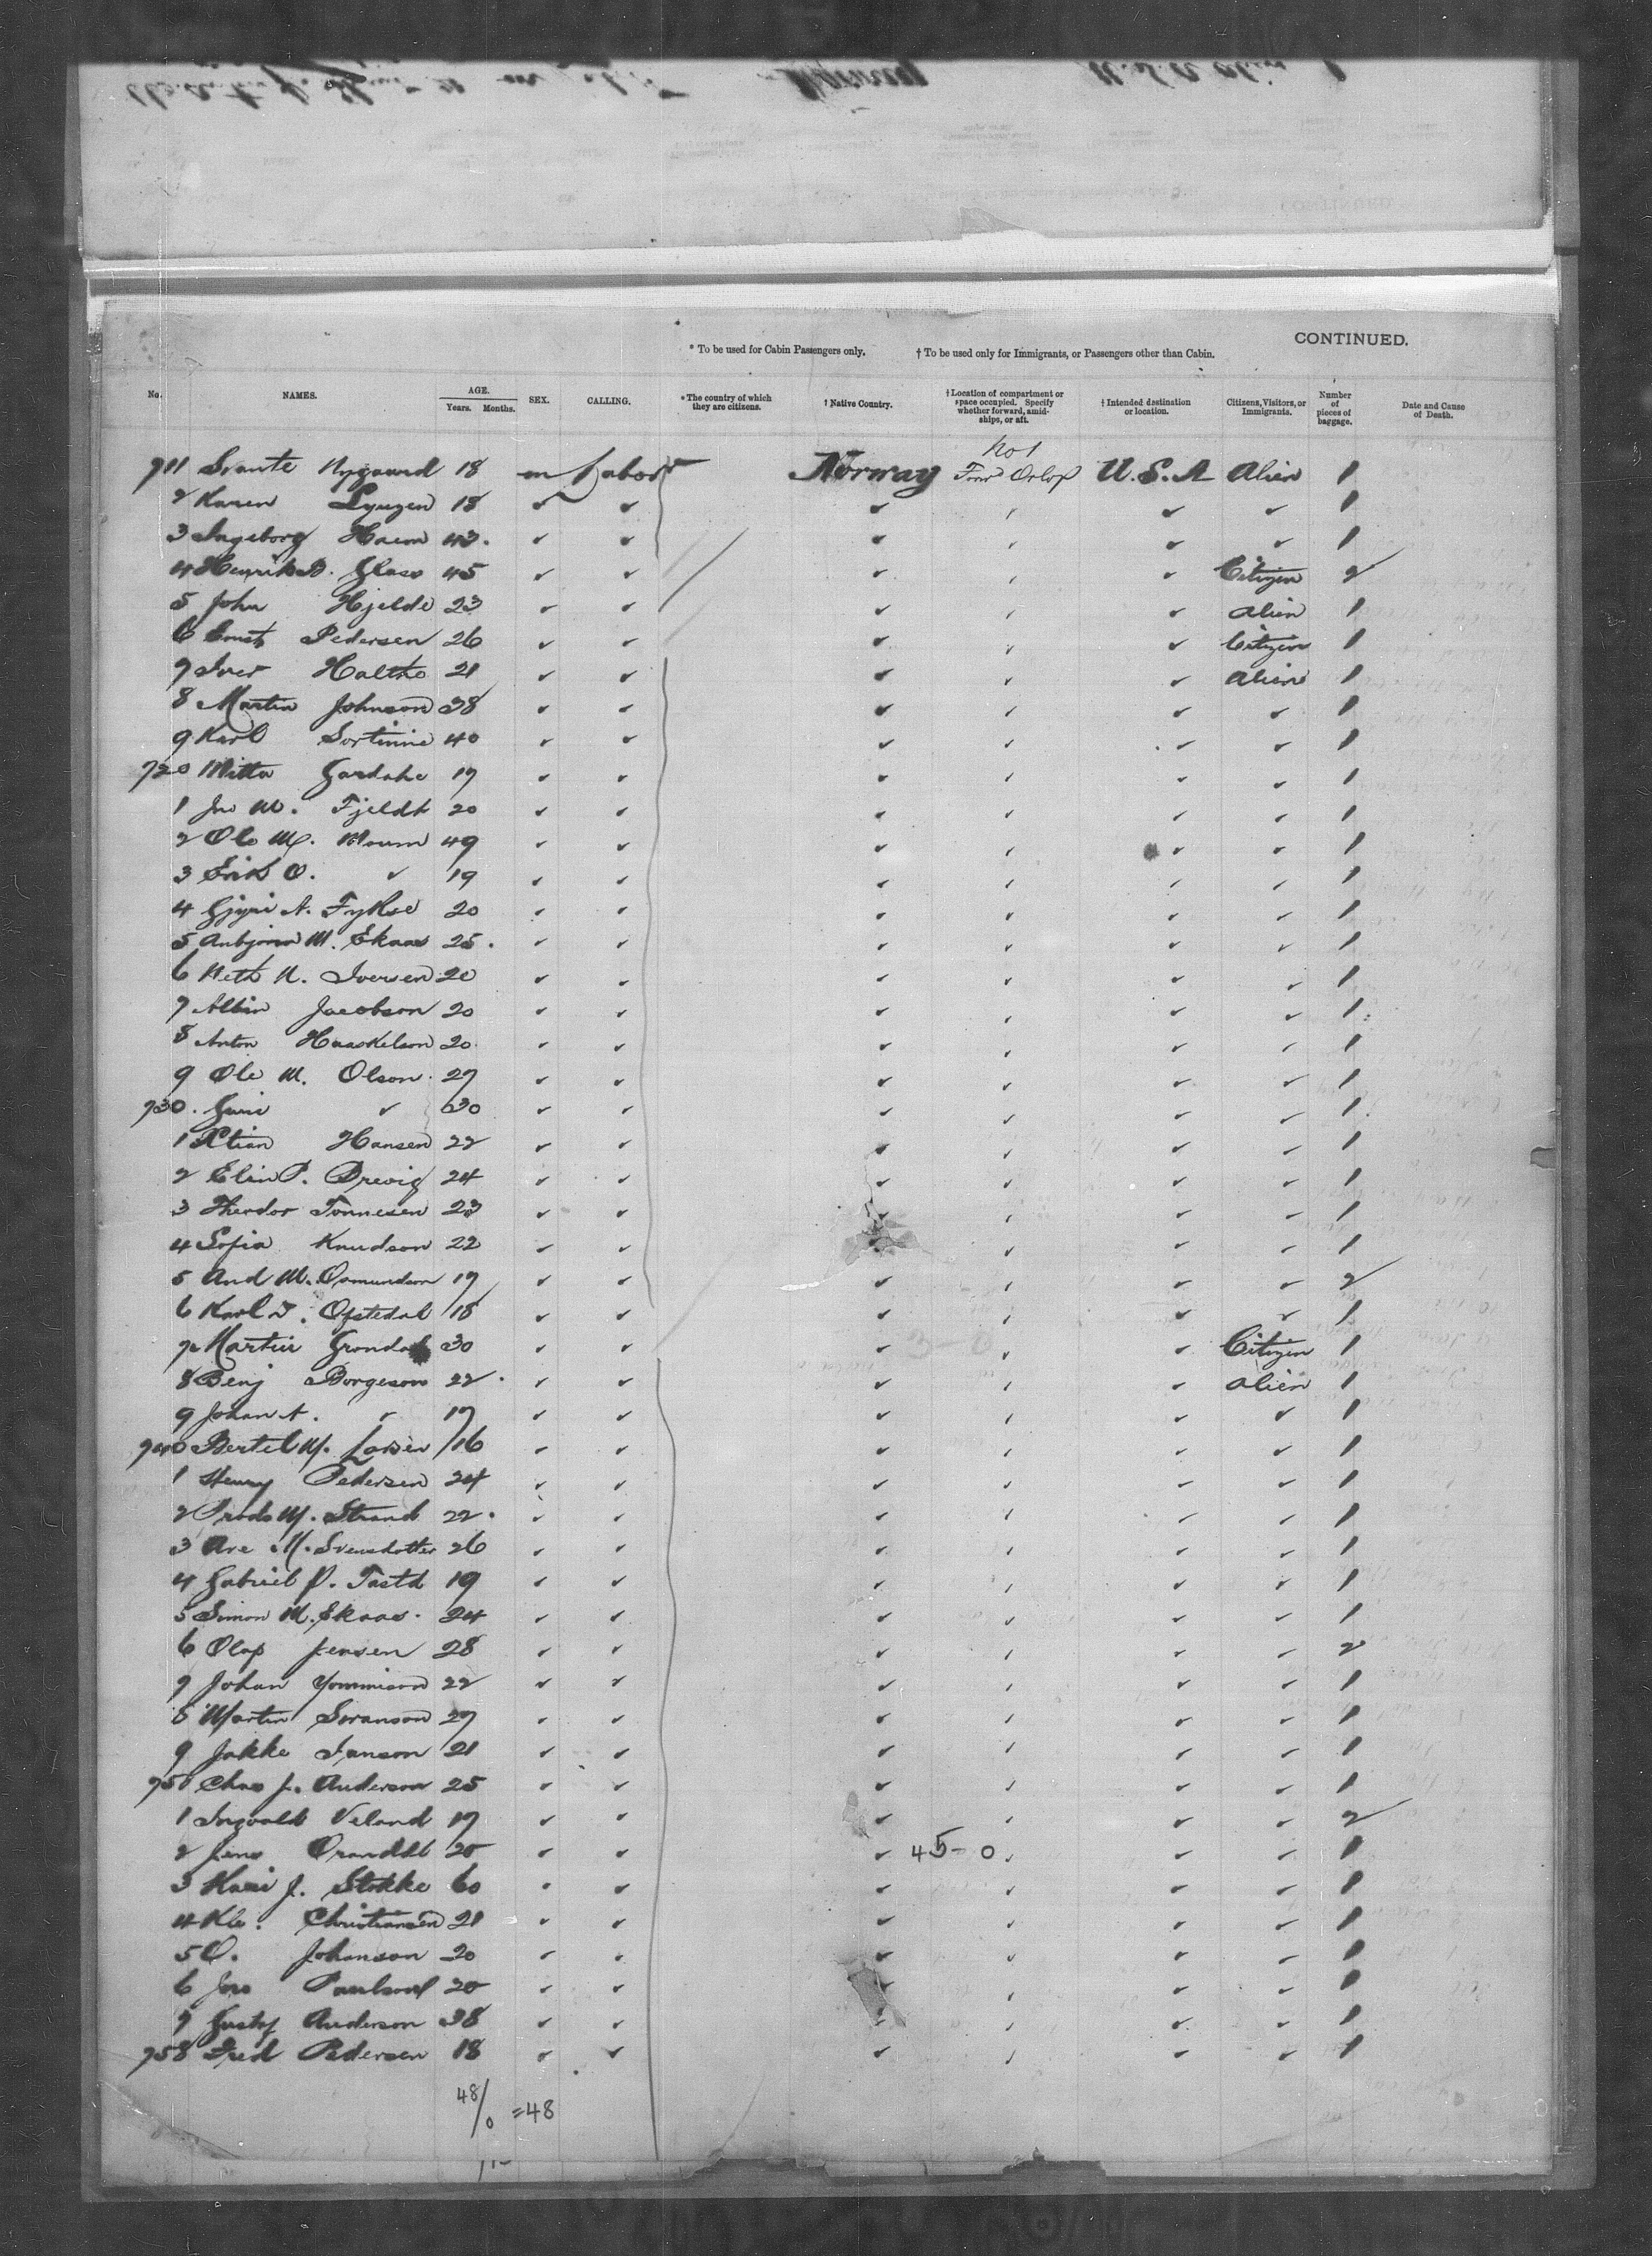 CONTINUED.
* To be used for Cabin Passengers only. † To be used only for Immigrants, or Passengers other than Cabin.
No. NAMES. AGE. Years. Months. SEX. CALLING. * The country of which they are citizens. † Native Country. † Location of compartment or space occupied. Specify whether forward, amidships, or aft. † Intended destination or location. Citizens, Visitors, or Immigrants. Number of pieces of baggage. Date and Cause of Death.
No 1
711 Svante Nygaard 18 m Labor Norway Forw Orlop U.S.A Alien 1
2 Karen 18 ✓ ✓ ✓ ✓ ✓ ✓ 1
3 Ingeborg 43. ✓ ✓ ✓ ✓ ✓ ✓ 1
4 Henrik B. Glass 45 ✓ ✓ ✓ ✓ ✓ Citizen 2
5 John Hjelde 23 ✓ ✓ ✓ ✓ ✓ Alien 1
6 Pedersen 26 ✓ ✓ ✓ ✓ ✓ Citizen 1
7 Iver 21 ✓ ✓ ✓ ✓ ✓ Alien 1
8 Martin Johnson 38 ✓ ✓ ✓ ✓ ✓ ✓ 1
9 Karl 40 ✓ ✓ ✓ ✓ ✓ ✓ 1
720 17 ✓ ✓ ✓ ✓ ✓ ✓ 1
1 Jno M. Fjeldt 20 ✓ ✓ ✓ ✓ ✓ ✓ 1
2 Ole M. Moum 49 ✓ ✓ ✓ ✓ ✓ ✓ 1
3 Erik O. ✓ 19 ✓ ✓ ✓ ✓ ✓ ✓ 1
4 A. Fykse 20 ✓ ✓ ✓ ✓ ✓ ✓ 1
5 M. Ekaas 25. ✓ ✓ ✓ ✓ ✓ ✓ 1
6 N. Iversen 20 ✓ ✓ ✓ ✓ ✓ ✓ 1
7 Albin Jacobson 20 ✓ ✓ ✓ ✓ ✓ ✓ 1
8 Anton Haaskelson 20 ✓ ✓ ✓ ✓ ✓ ✓ 1
9 Ole M. Olson 27 ✓ ✓ ✓ ✓ ✓ ✓ 1
730. ✓ 30 ✓ ✓ ✓ ✓ ✓ ✓ 1
1 Xtian Hansen 22 ✓ ✓ ✓ ✓ ✓ ✓ 1
2 Elin P. Brevig 24 ✓ ✓ ✓ ✓ ✓ ✓ 1
3 Theodor Tonnesen 23 ✓ ✓ ✓ ✓ ✓ ✓ 1
4 Sofia Knudson 22 ✓ ✓ ✓ ✓ ✓ ✓ 1
5 And M. Osmundson 17 ✓ ✓ ✓ ✓ ✓ ✓ 2
6 Karl T. Ofstedal 18 ✓ ✓ ✓ ✓ ✓ ✓ 1
7 Martin Grondal 30 ✓ ✓ ✓ ✓ ✓ Citizen 1
8 Benj Borgeson 22. ✓ ✓ ✓ ✓ ✓ Alien 1
9 Johan A. ✓ 17 ✓ ✓ ✓ ✓ ✓ ✓ 1
740 Bertel M. Larsen 16 ✓ ✓ ✓ ✓ ✓ ✓ 1
1 Henry Pedersen 24 ✓ ✓ ✓ ✓ ✓ ✓ 1
2 M. Strand 22. ✓ ✓ ✓ ✓ ✓ ✓ 1
3 Ave M. Svensdotter 26 ✓ ✓ ✓ ✓ ✓ ✓ 1
4 Gabriel P. 19 ✓ ✓ ✓ ✓ ✓ ✓ 1
5 Simon M. Ekaas. 24 ✓ ✓ ✓ ✓ ✓ ✓ 1
6 Olaf Jensen 28 ✓ ✓ ✓ ✓ ✓ ✓ 2
7 Johan 22 ✓ ✓ ✓ ✓ ✓ ✓ 1
8 Martin Soranson 27 ✓ ✓ ✓ ✓ ✓ ✓ 1
9 Jakke Ianson 21 ✓ ✓ ✓ ✓ ✓ ✓ 1
750 Chas J. Anderson 25 ✓ ✓ ✓ ✓ ✓ ✓ 1
1 Ingvald Veland 19 ✓ ✓ ✓ ✓ ✓ ✓ 2
2 Jens 20 ✓ ✓ ✓ 45-0 ✓ ✓ ✓ 1
3 J. Stokke 60 ✓ ✓ ✓ ✓ ✓ ✓ 1
4 Christiansen 21 ✓ ✓ ✓ ✓ ✓ ✓ 1
5 O. Johanson 20 ✓ ✓ ✓ ✓ ✓ ✓ 1
6 Paulson 20 ✓ ✓ ✓ ✓ ✓ ✓ 1
7 Gustaf Anderson 38 ✓ ✓ ✓ ✓ ✓ ✓ 1
758 Fred Pedersen 18 ✓ ✓ ✓ ✓ ✓ ✓ 1
48/0 =48